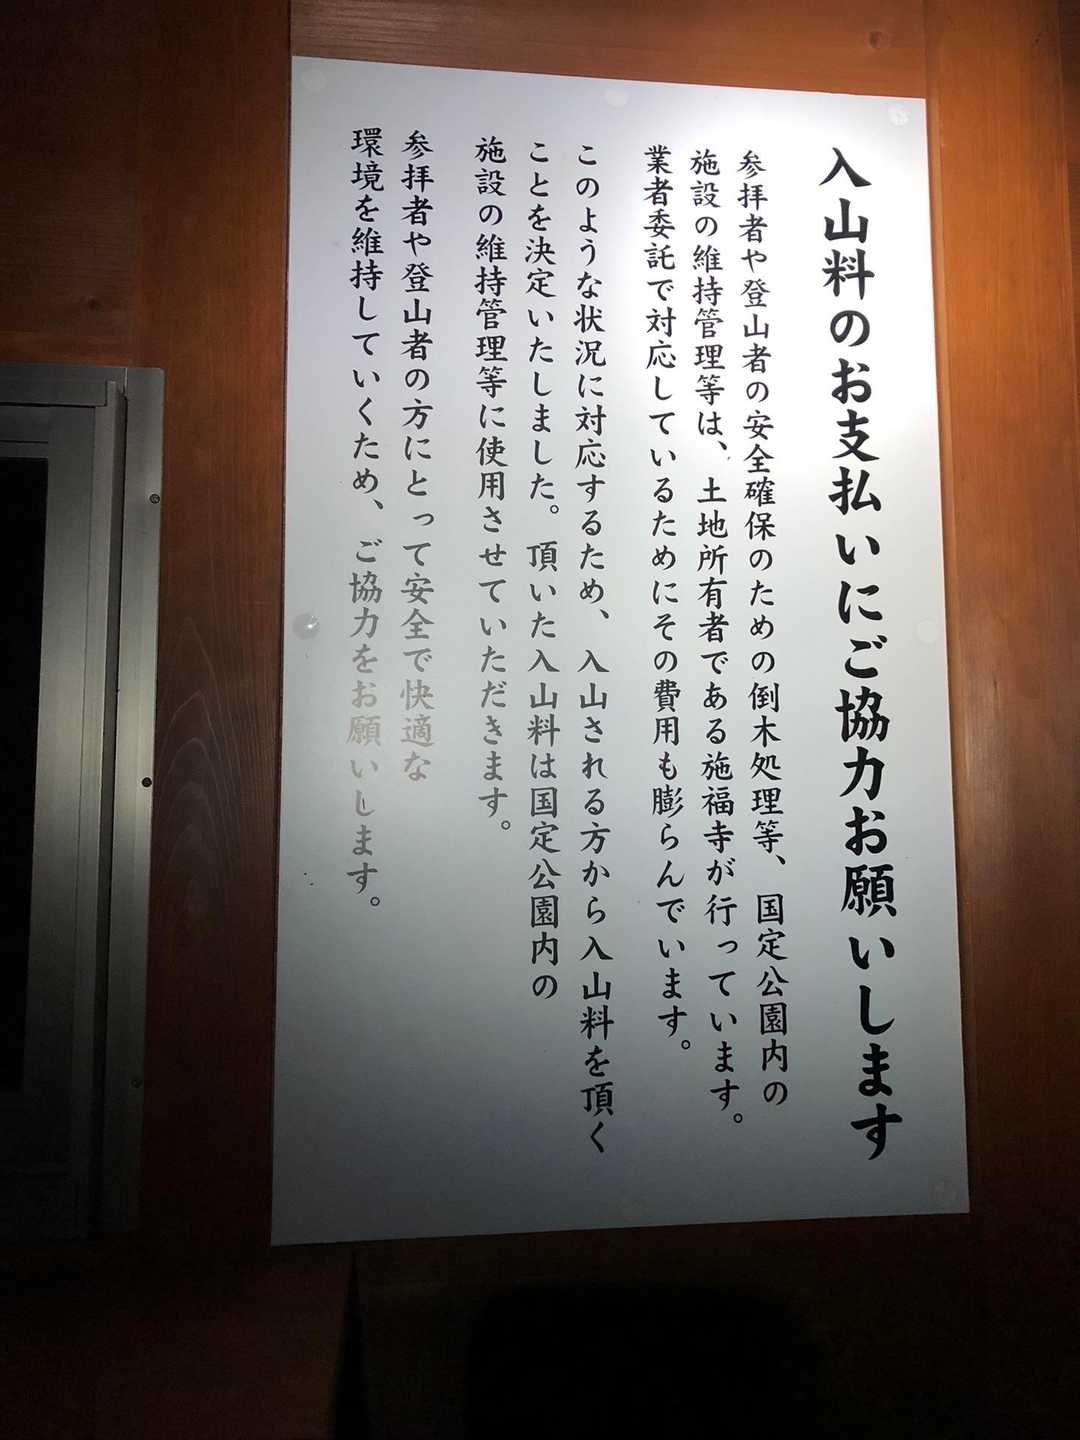 入山料のお支払いにご協力お願いします
参拝者や登山者の安全確保のための倒木処理等、国定公園内の
施設の維持管理等は、土地所有者である施福寺が行っています。
業者委託で対応しているためにその費用も膨らんでいます。
このような状況に対応するため、入山される方から入山料を頂く
ことを決定いたしました。頂いた入山料は国定公園内の
施設の維持管理等に使用させていただきます。
参拝者や登山者の方にとって安全で快適な
環境を維持していくため、ご協力をお願いします。